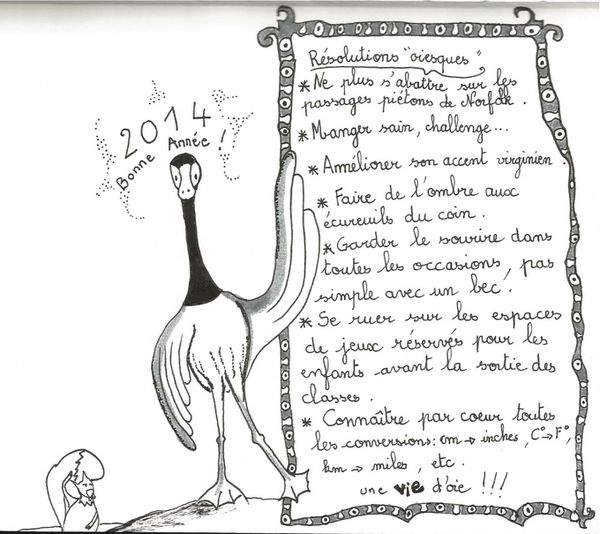 2014
Bonne Année !
Résolutions "oiesques"
* Ne plus s'abattre sur les
passages piétons de Norfolk.
* Manger sain, challenge...
* Améliorer son accent virginien.
* Faire de l'ombre aux
écureuils du coin.
* Garder le sourire dans
toutes les occasions, pas
simple avec un bec !
* Se ruer sur les espaces
de jeux réservés pour les
enfants avant la sortie des
classes.
* Connaître par coeur toutes
les conversions: cm → inches, C° → F°,
km → miles, etc.
une vie d'oie !!!